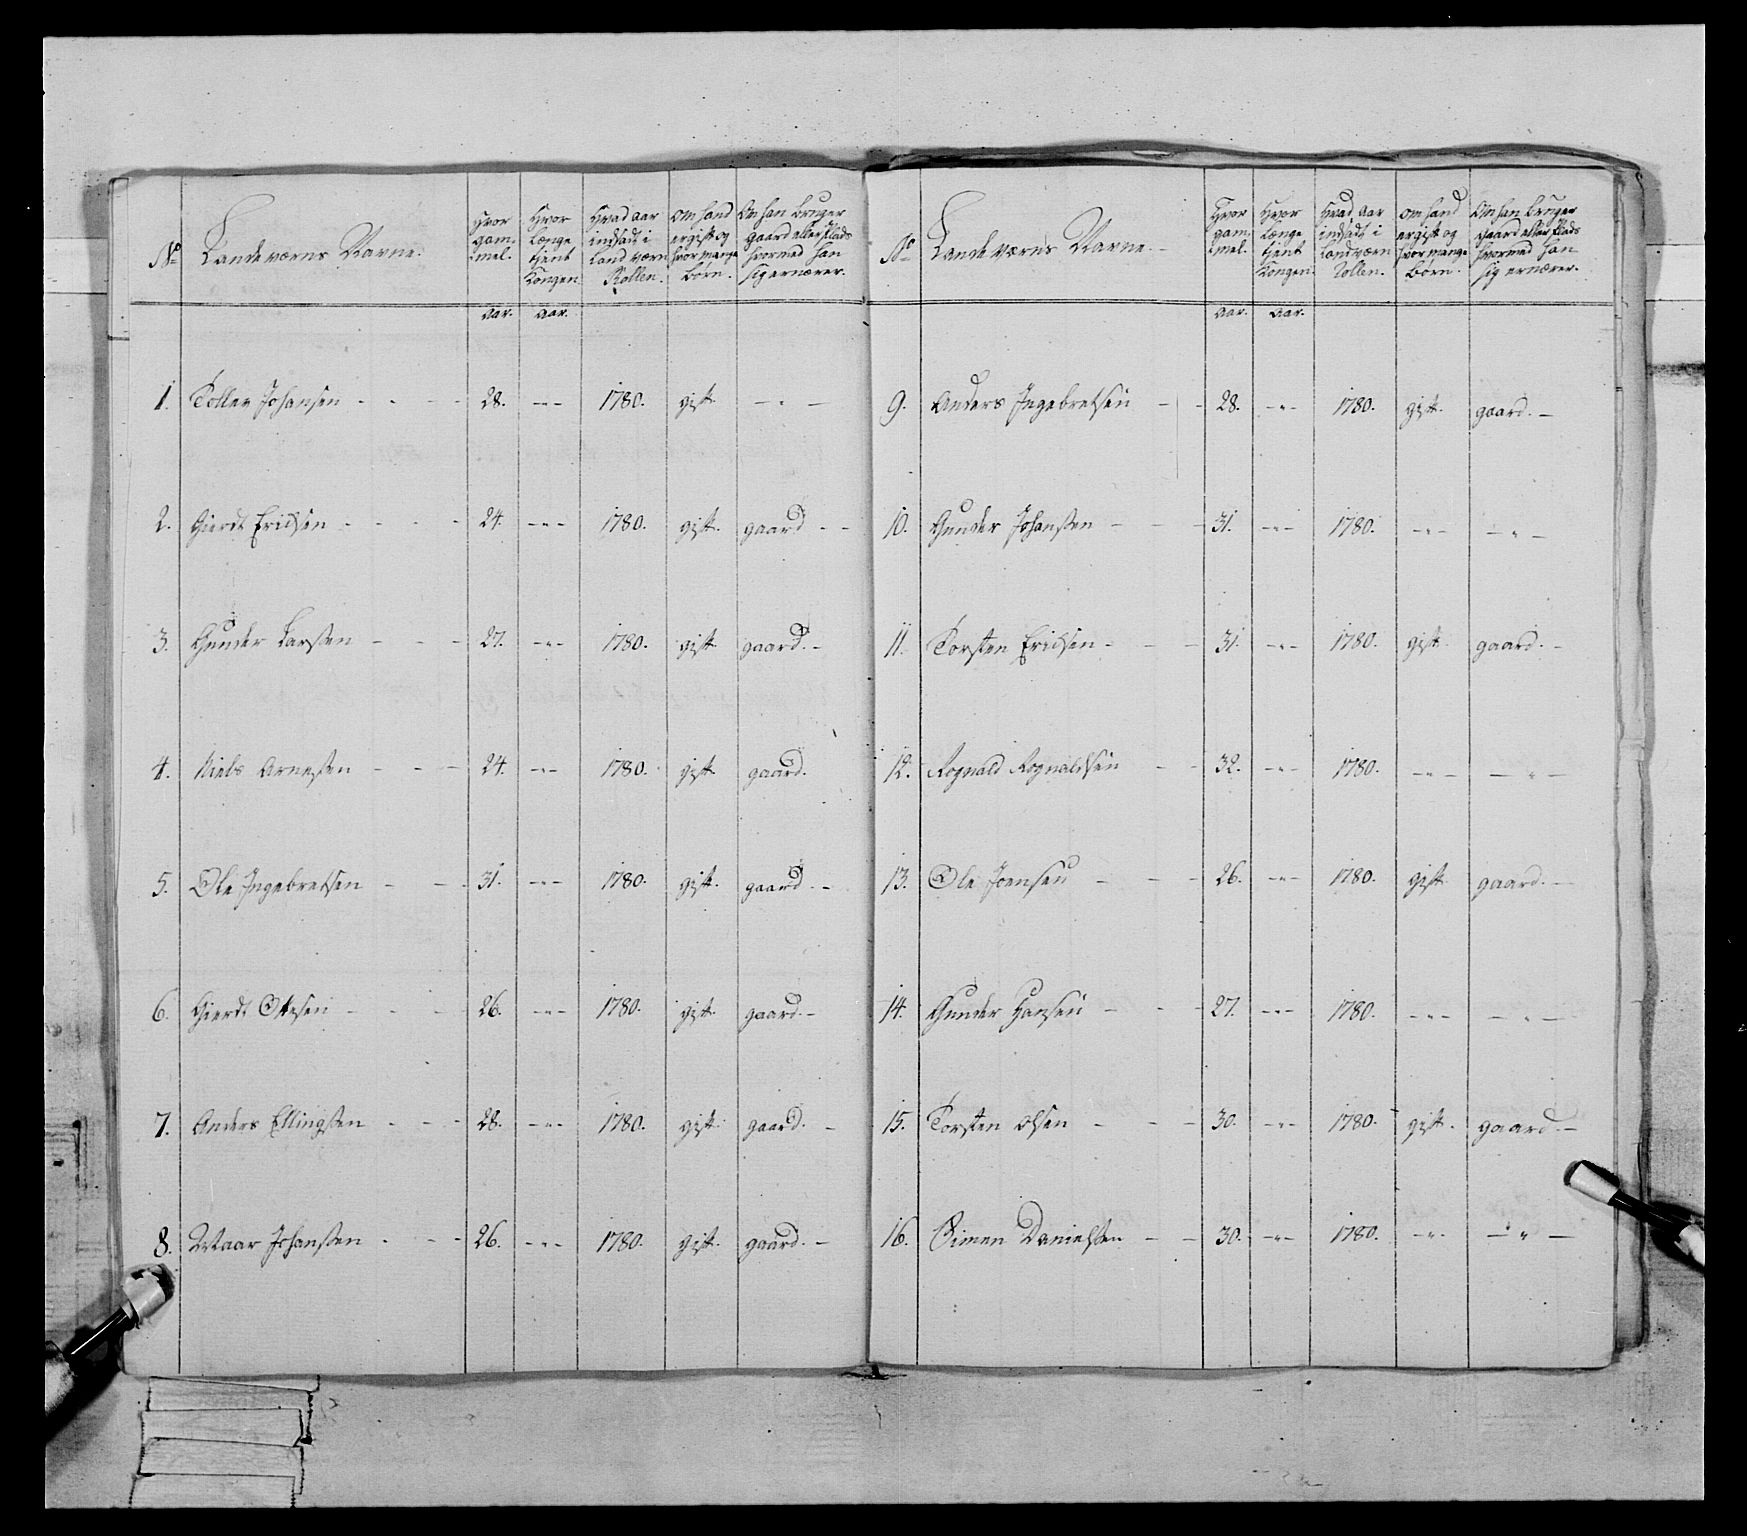 No Landeværns Navne.
Hvor gam„ mel.
Hvor Længe tient Kongen
Hvad aar indsadt i Land værn Rollen.
Om hand er gift og hvor mange børn.
Om han bruger gaard eller Plads hvormed han sig ernærer.
aar. aar.
1. Tollev Johansen - - - 28. -"- 1780. gift. - " -
2. Gierdt Erichsen - - - - 24. -"- 1780. gift. gaard - -
3. Gunder Larssen - - - 27. -"- 1780. gift. gaard. -
4. Niels Arnessen - - - 24. -"- 1780. gift. gaard.
5. Ole Ingebretsen - - - 31. -"- 1780. gift. gaard. -
6. Gierdt Ottesen - - - 26. -"- 1780. gift. gaard. -
7. Anders Ellingssen - - - 28. -"- 1780. gift. gaard. -
8. Johanssen - - - 26. -"- 1780. gift. gaard. -
No Landeværns Navne. -
Hvor gam„ mel.
Hvor Længe tient Kongen
Hvad aar indsadt i Landværn Rollen.
Om hand er gift og hvor mange Børn.
Om han bruger Gaard eller Plads hvormed han sig ernærer.
aar. aar.
9. Anders Ingebretsen - - 28. -"- 1780. gift. gaard. -
10. Gunder Johanssen - - - 31. -"- 1780. -"- - " -
11. Torsten Erichsen - - - 31. -"- 1780. gift. gaard. -
12. Rognald Rognaldsen - - 32. -"- 1780. -"- - " -
13. Ole Joensen - - - 26. -"- 1780. gift. gaard. -
14. Gunder Hansen - - - 27. -"- 1780. -"- - " -
15. Torsten Olsen - - - 30. -"- 1780. gift. gaard. -
16. Simen Danielssen - - 30. -"- 1780. -"- - " -